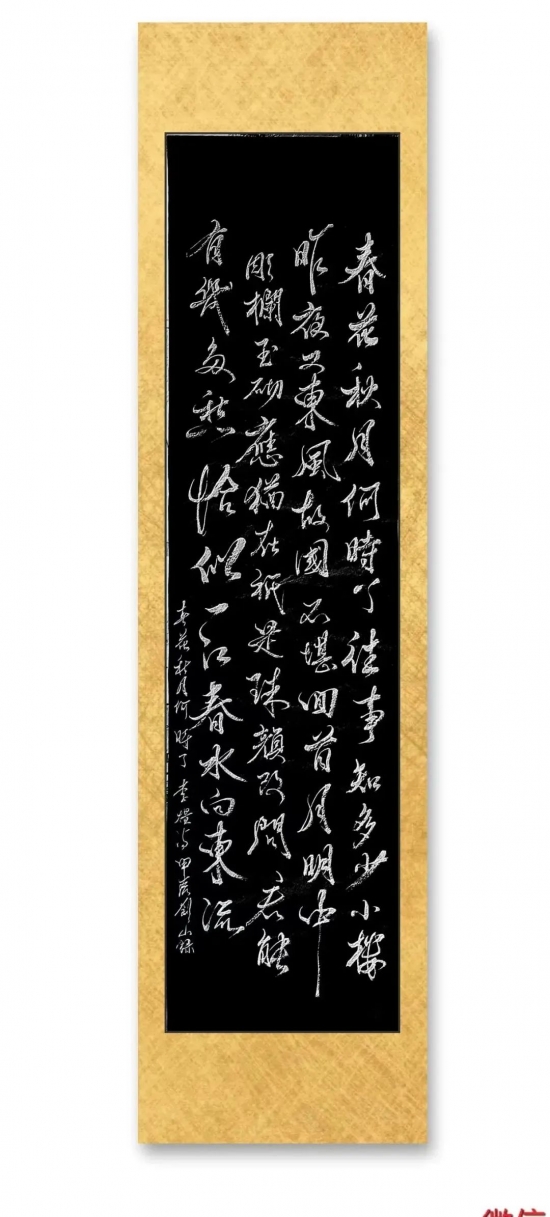 春花秋月何時了往事知多少小樓
昨夜又東風故國不堪回首月明中
彫欄玉砌應猶在衹是珠顏改問君能
有幾多愁恰似一江春水向東流
春花秋月何時了李煜詩甲辰劍山錄
微信